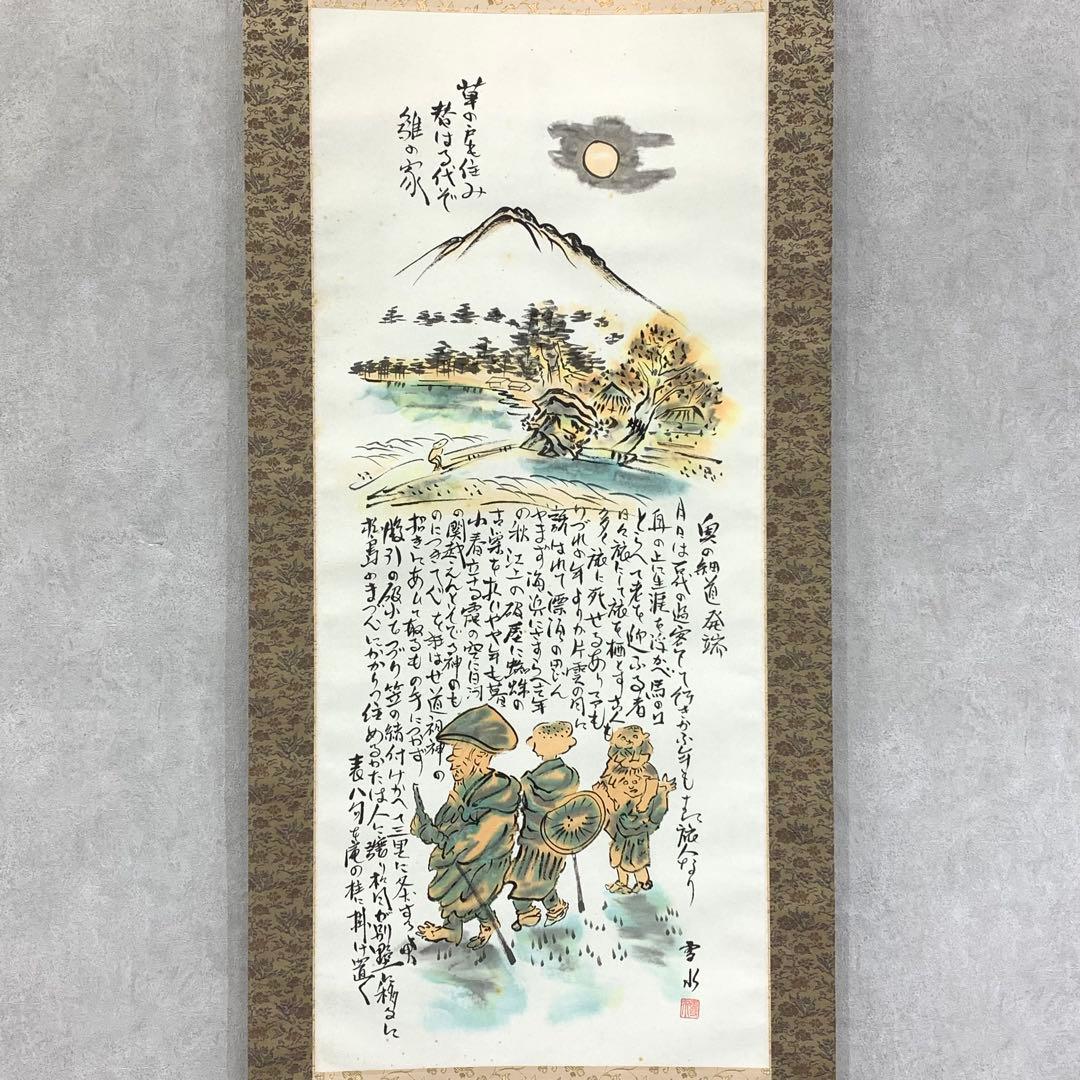 草の戸も住み
替はる代ぞ
雛の家
奥の細道発端
月日は百代の過客にして行きかふ年もまた旅人なり
舟の上に生涯をうかべ馬の口
とらへて老を迎ふる者
日々旅にして旅を栖とす古人も
多く旅に死せるあり予も
いづれの年よりか片雲の風に
誘はれて漂泊の思ひ
やまず海浜にさすらへ去年
の秋江上の破屋に蜘蛛の
古巣を払ひやや年も暮
春立てる霞の空に白河
の関越えんとそぞろ神のも
のにつきて心を狂はせ道祖神の
招きにあひて取るもの手につかず
股引の破れをつづり笠の緒付けかへて三里に灸すうる
松島の月まづ心にかかりて住めるかたは人に譲り杉風が別墅に移るに
表八句を庵の柱に掛け置く
雪水